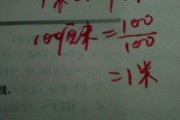 100厘米=\frac{100}{100}
=1米